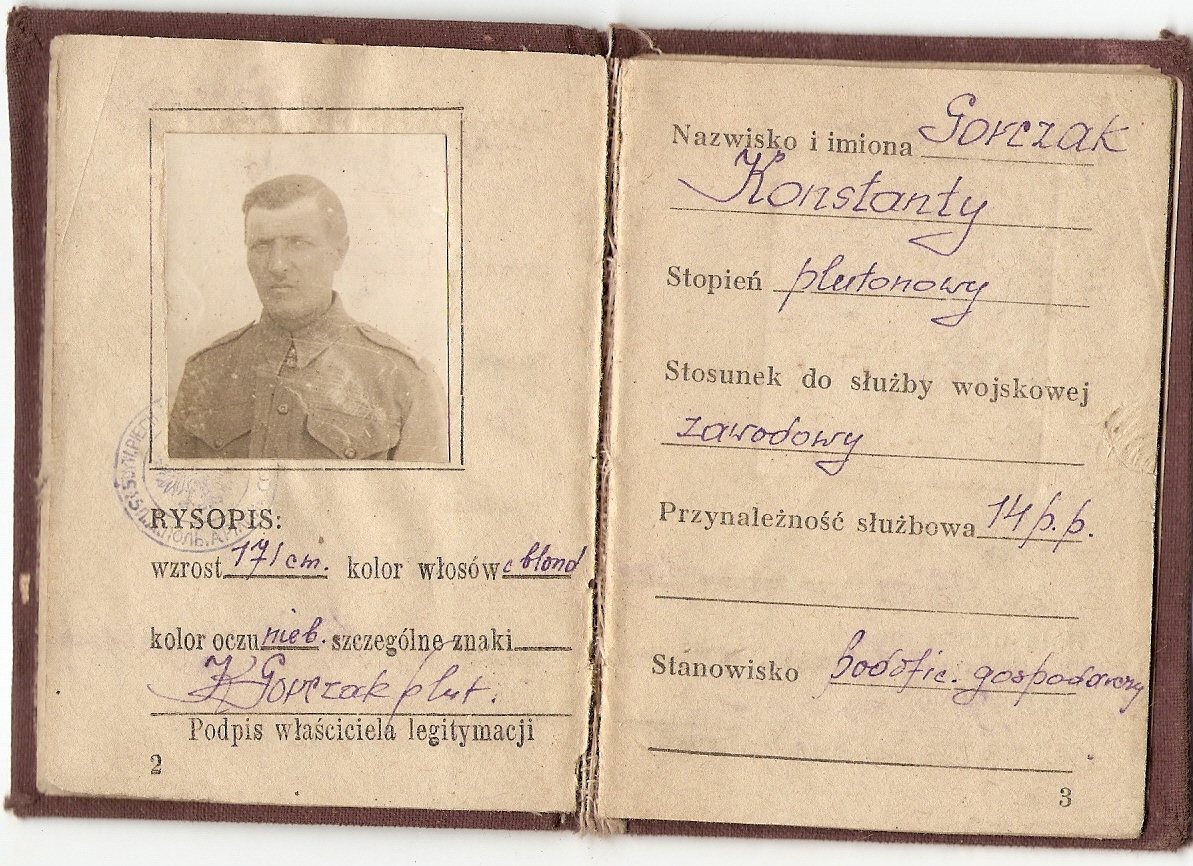 RYSOPIS:
wzrost 171 cm. kolor włosów c blond
kolor oczu nieb. szczególne znaki
K Gorczak plut.
Podpis właściciela legitymacji
2
Nazwisko i imiona Gorczak
Konstanty
Stopień plutonowy
Stosunek do służby wojskowej
zawodowy
Przynależność służbowa 14 p.p.
Stanowisko podofic. gospodarczy
3